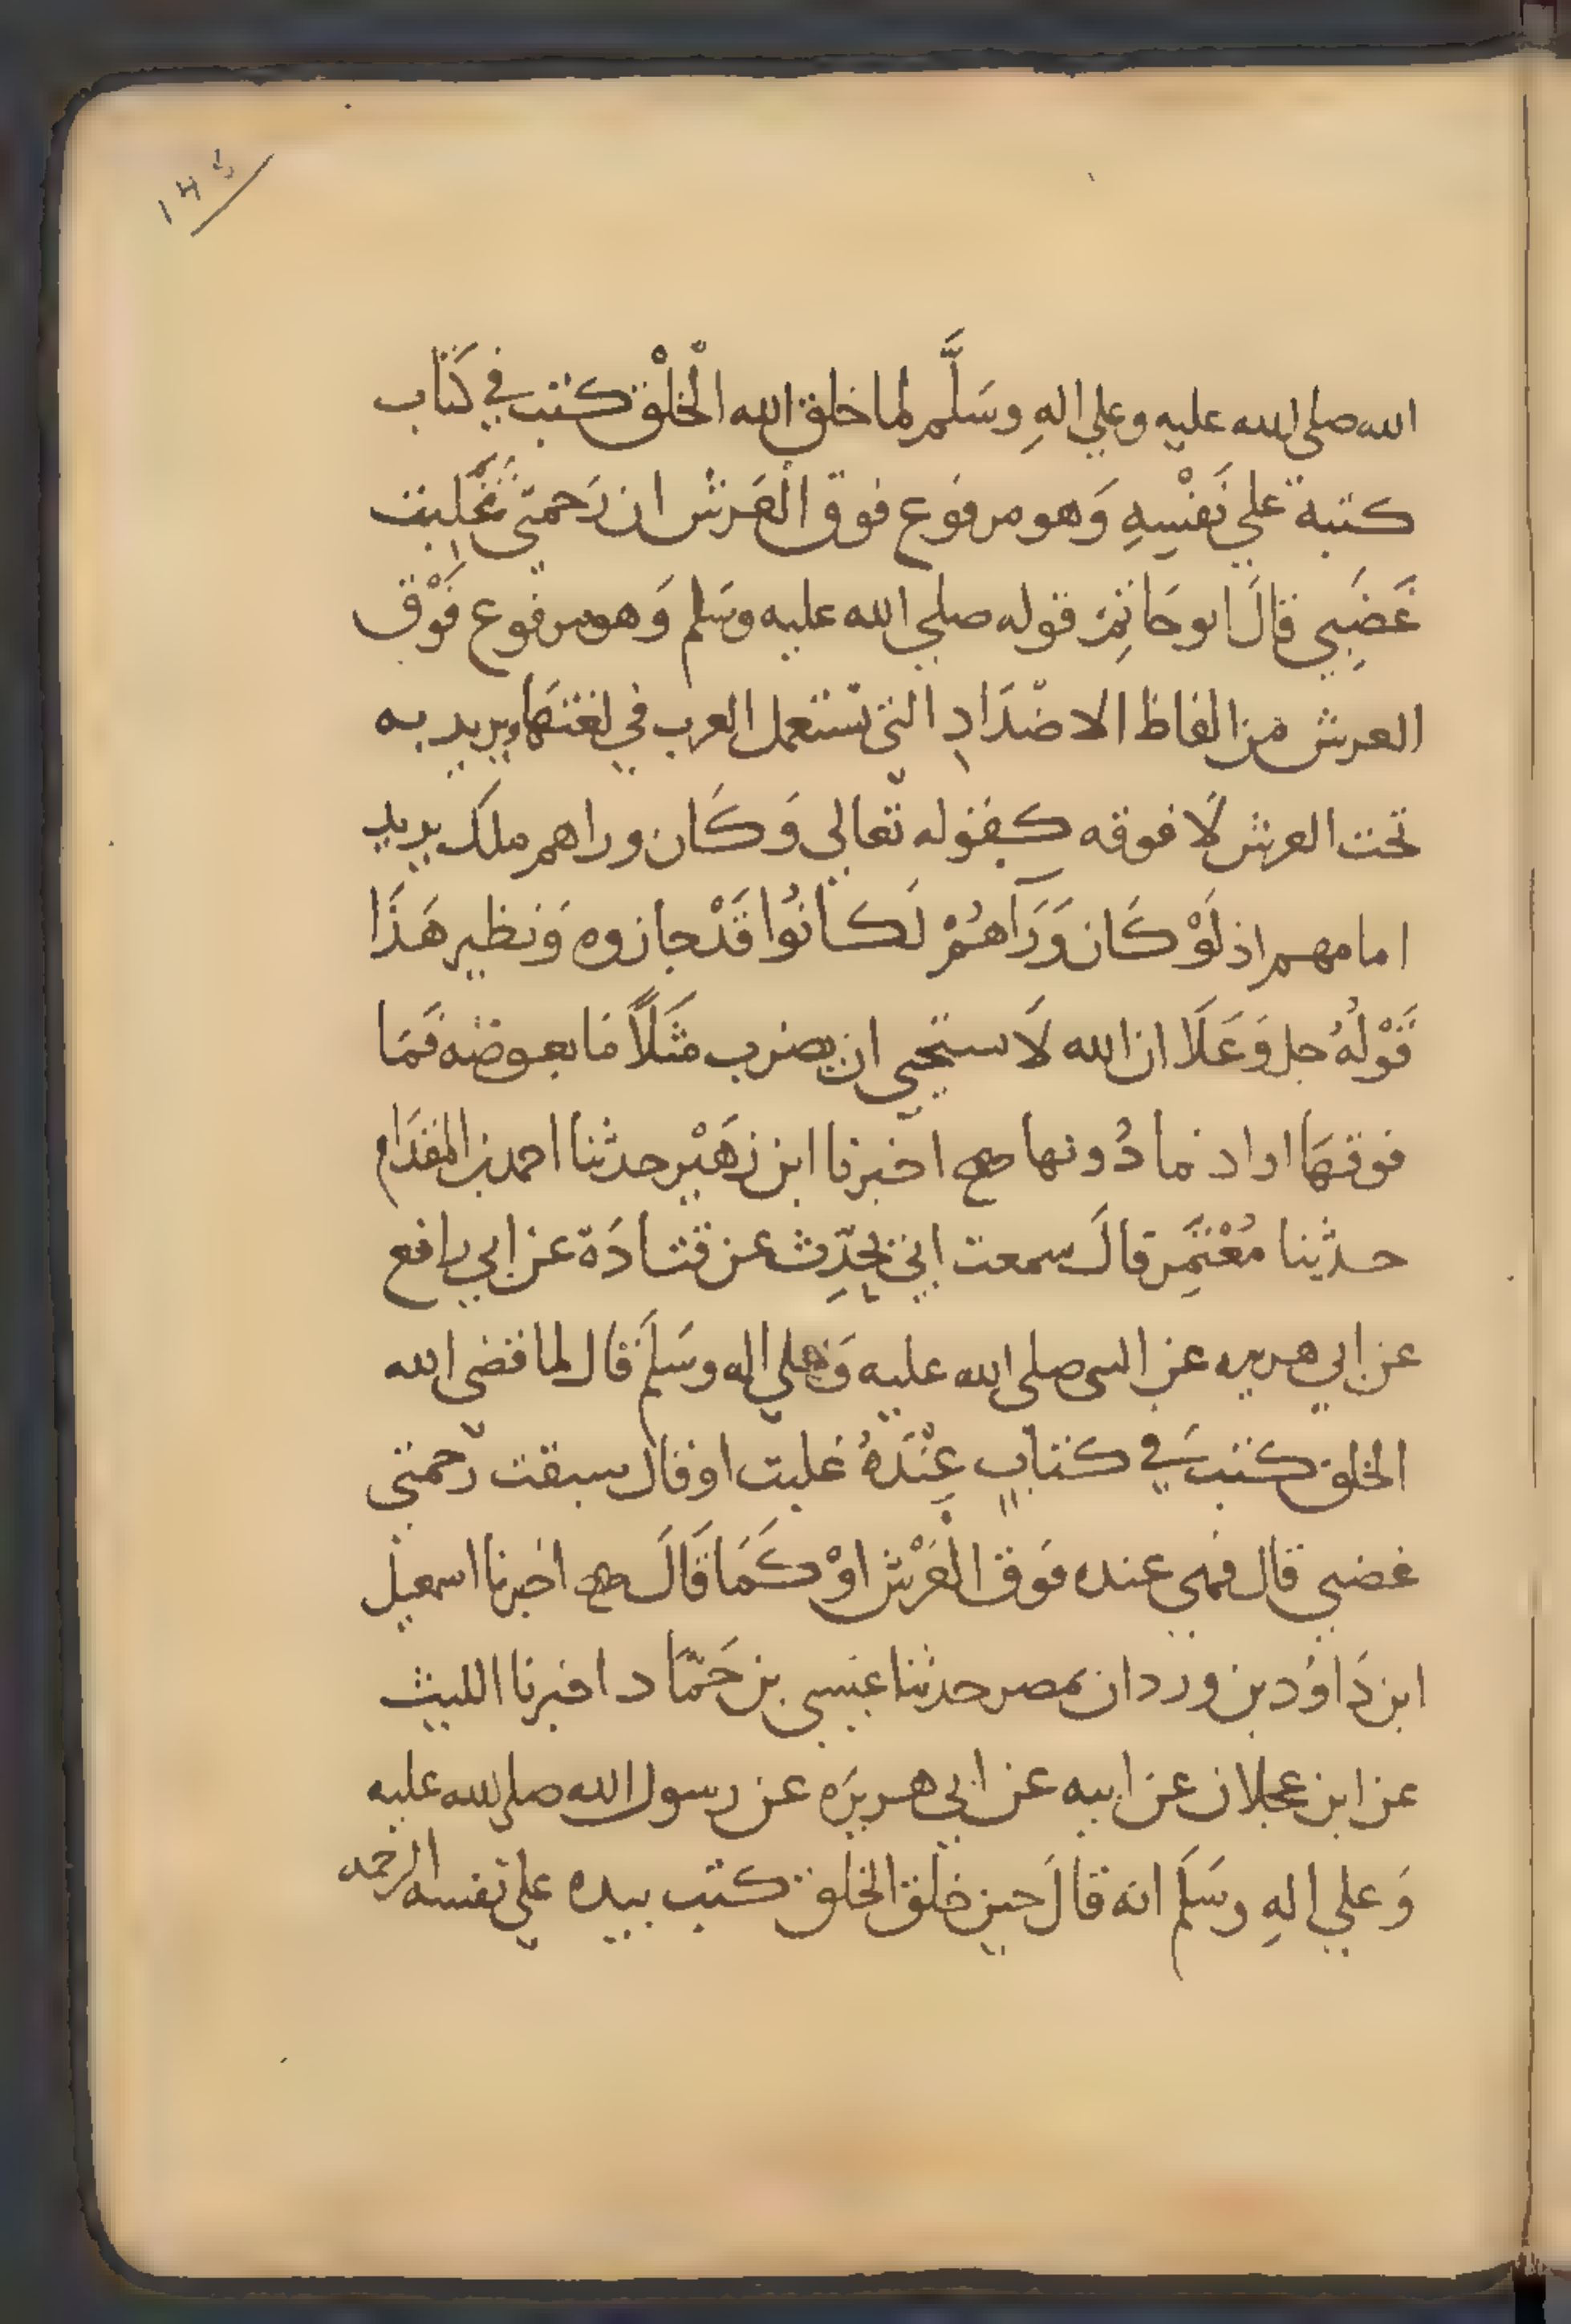 الله صلى الله عليه وعلي الهِ وسَلَّم لما خلق الله الْخلْق كتب في كتَاب
كتبة علي نَفْسِهِ وَهو مرفوع فوق العَرش ان رَحمتي تغَلِبت
غَضَبِي قالَ ابو حَاتِم قوله صلي الله عليه وسَلم وَهو مرفوع فَوْق
العرش من الفاظ الاضْدَادِ التي تستعمل العرب في لغتهَا ويريد به
تحت العرش لَا فوقه كقوله تعالي وَكَان وراهم ملك يريد
امامهم اذ لَوْ كَان وَرَآهُمْ لَكانُوا قَدْ جازوه وَنظير هَذَا
قَوْلُهُ جل وَعَلَا ان الله لَا ستحيي ان يضرب مثَلًا مَا بعوضه فَمَا
فوقهَا اراد فما دُونها صح اخبرنا ابن زهَيْر حدثنا احمد بن المقدَام
حدثينا مُعْتَمِر قالَ سمعت ابي يحدِّث عن قتادَة عن ابي رافع
عن ابي هريره عن النبى صلى الله عليه وَعلي اله وسَلَم قال لما قضى الله
الخلق كتب في كتابٍ عِنْدَهُ غلبت او قال سبقت رحمتي
غضبي قال فهي عنده فوق الْعَرْش اوْ كَمَا قَالَ صح اخبرنا اسمعيل
ابن دَاوُد بن وردان بمصر حدثنا عيسى بن حَمَّاد اخبرنا الليث
عن ابن عجلان عن ابيه عن ابي هريرَه عن رسول الله صلى الله عليه
وَعلي الهِ وسَلَم انه قالَ حين خلق الخلق كتب بيده علي نفسه الرحمه